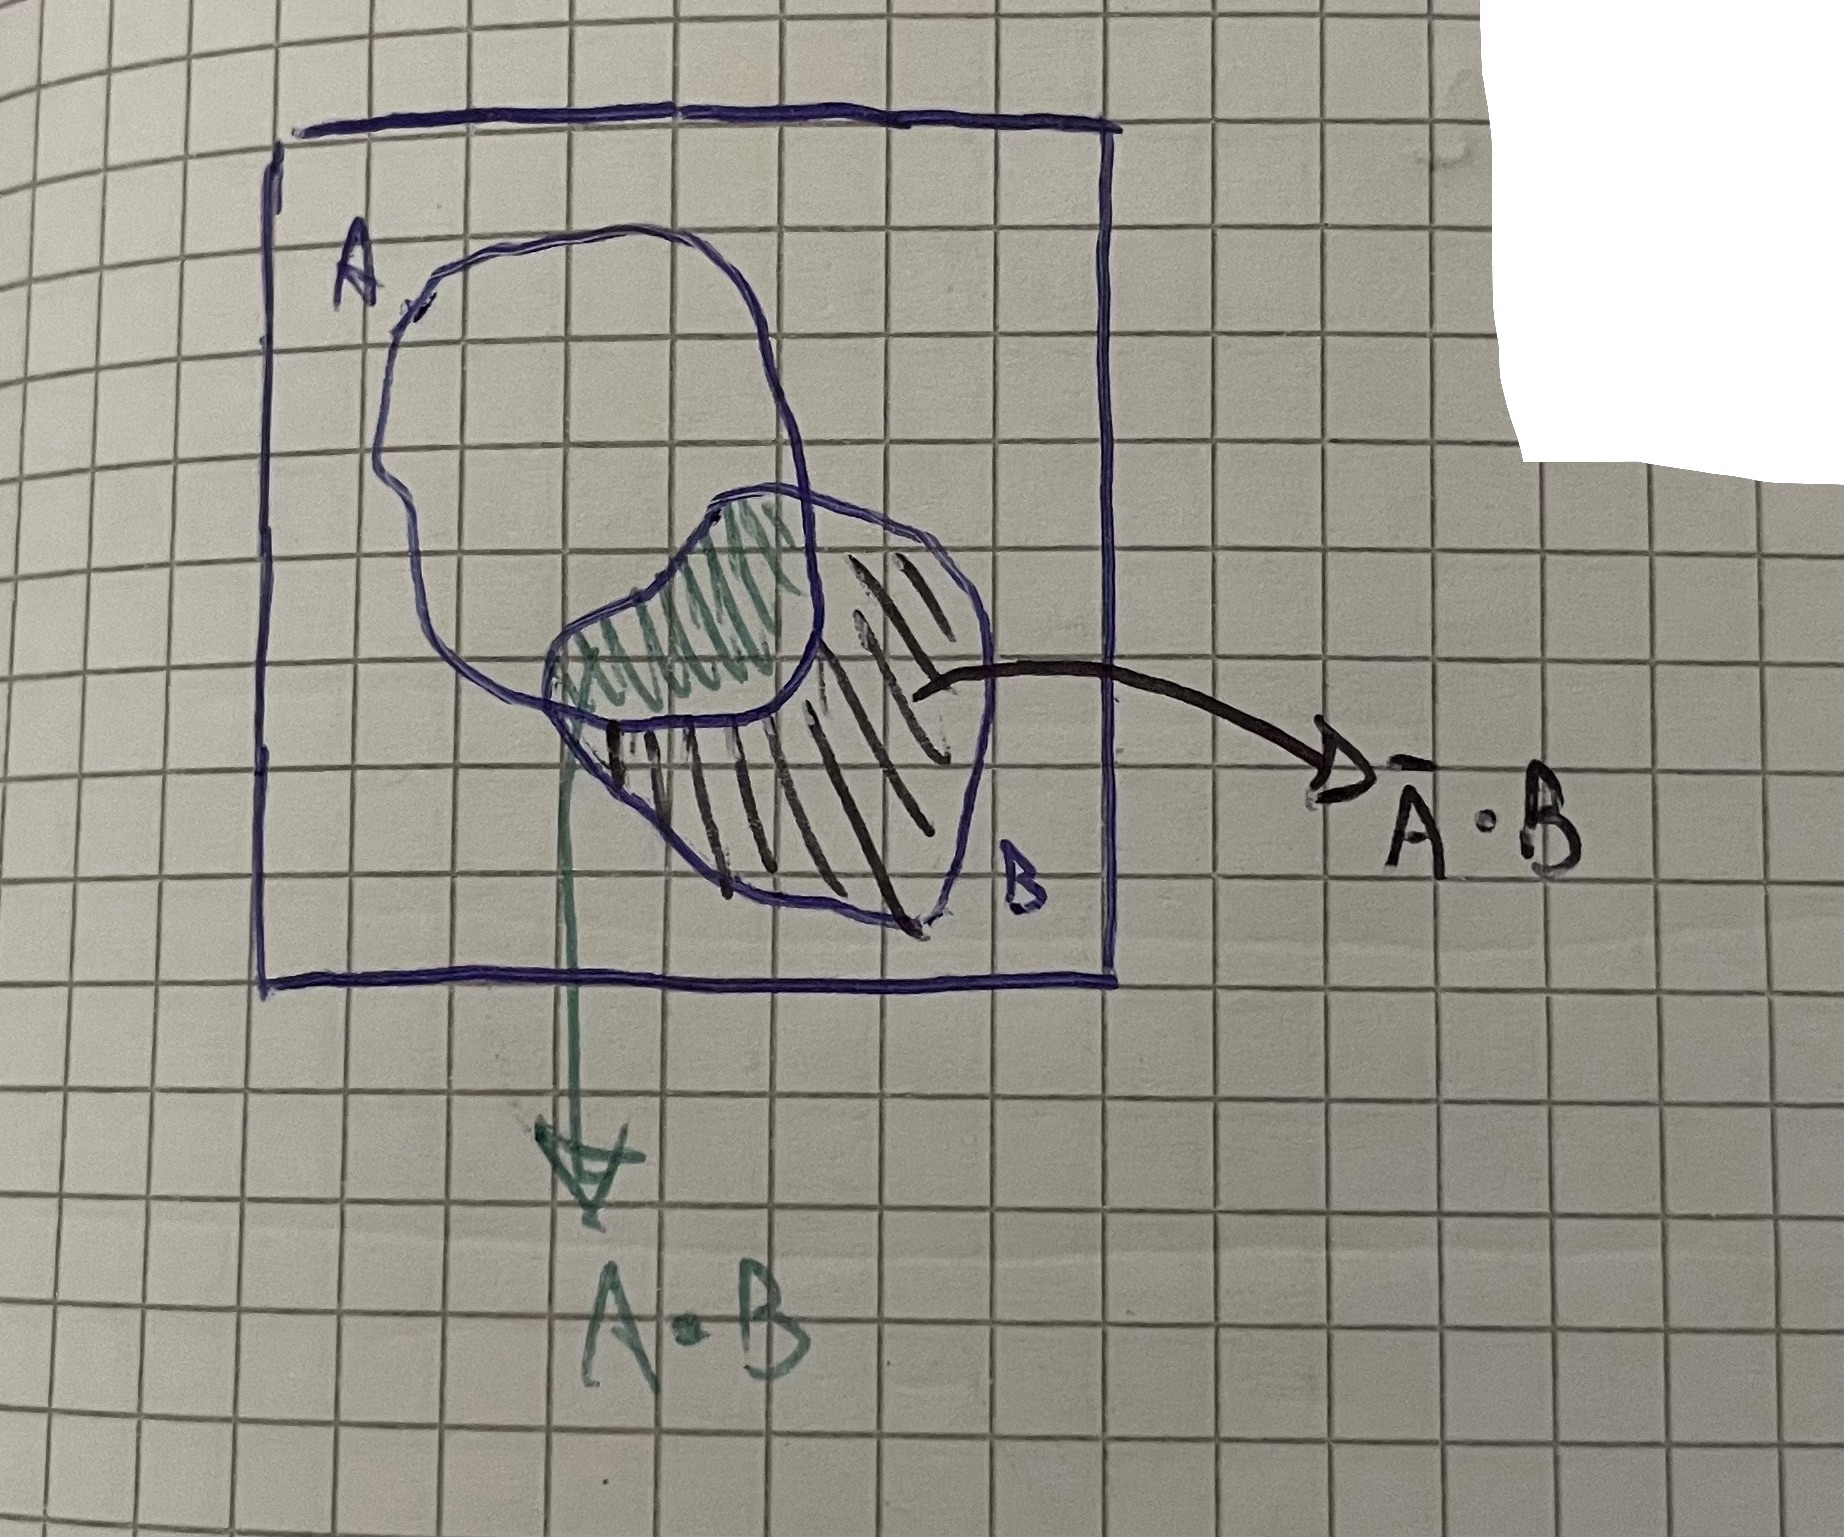 A
B
Ā · B
A · B